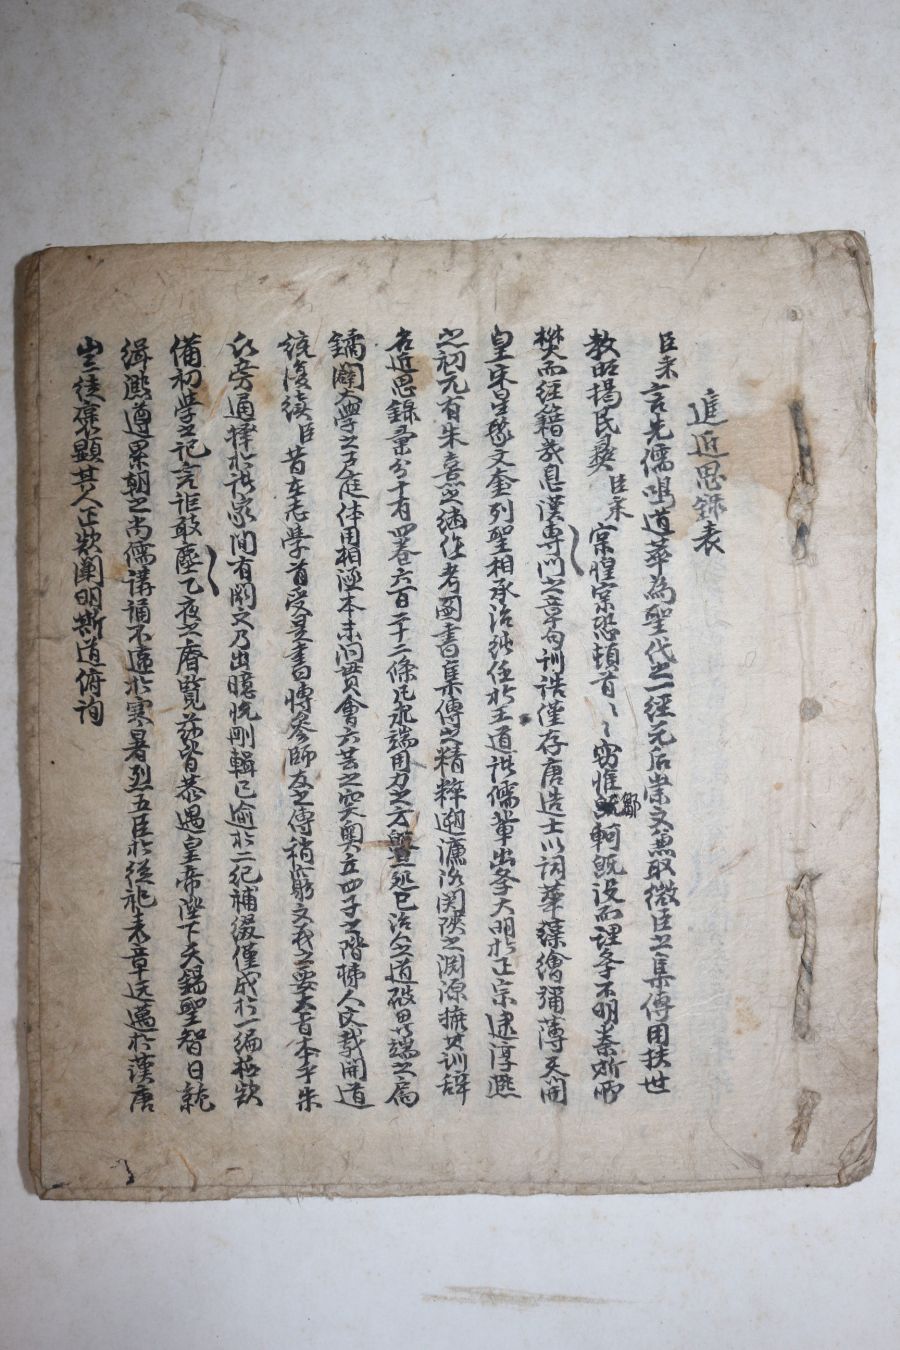 進近思錄表
臣采言先儒鳴道萃為聖代之一經元后崇文兼取微臣之集傳用扶世
教昭揭民彝臣采宗惶宗恐頓首〻〻窃惟鄒軻旣沒而理孝不明秦斯所
焚而經籍幾息漢專門之章句訓詁僅存唐造士以詞華藻繪彌薄天開
皇宋星聚文奎列聖相承治純任於王道諸儒輩出孝大明於正宗逮淳熙
之初元有朱熹之継作考圖書集傳之精粹遡濂洛関陜之淵源摭其訓辞
名近思錄彙分十有四卷六百二十二條凡求端用刀之方曁處已治人之道破異端之扃
鐍闢大學之戶庭体用相涵本末洞貫會六芸之突奧立四子之階梯人文載開道
統復續臣昔在志學首受是書愽參師友之傳稍窮文義之要大旨本乎朱
氏旁通擇於諸家間有闕文乃出臆說刪輯已逾於二紀補綴僅成於一編秪欲
備初學之記言詎敢塵乙夜之睿覽茲皆恭遇皇帝陛下天錫聖智日就
緝熙遵累朝之尚儒講誦不違於寒暑列五臣於從祀表章逺邁於漢唐
豈徒褒顯其人正欲闡明斯道俯詢